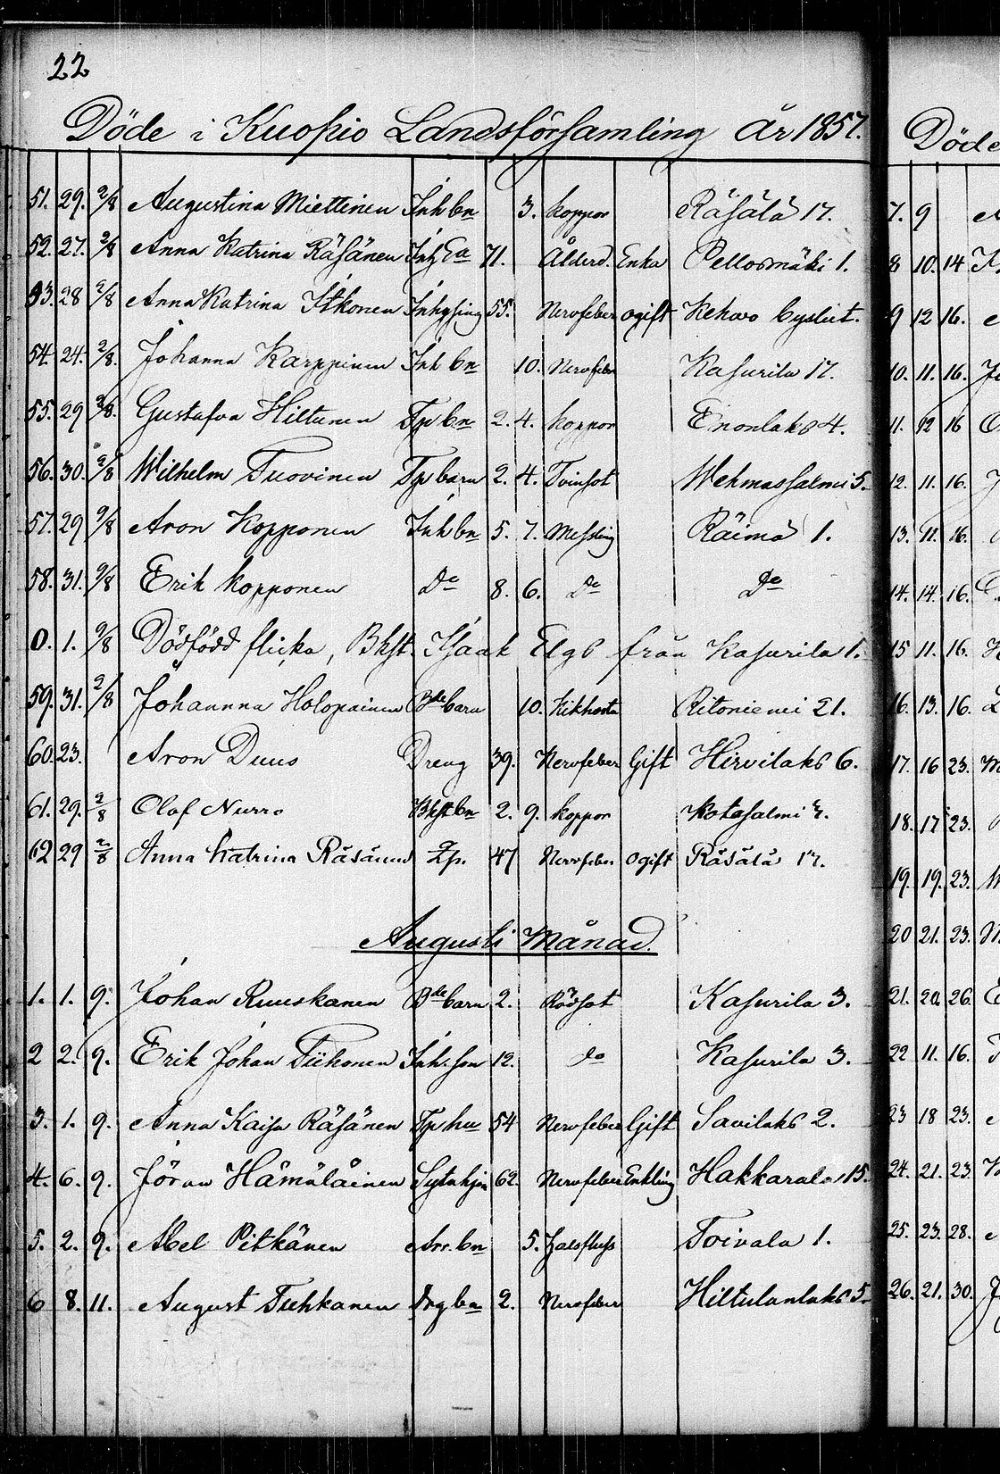 22
Döde i Kuopio Landsförsamling År 1857.
51. 29. 2/8 Augustina Miettinen Inh bn 3. koppor Räsälä 17.
52. 27. 2/8 Anna Katrina Räsänen Inh Ea 71. Ålderd. Enka Pellosmäki 1.
53. 28 2/8 Anna Katrina Itkonen Inhysing 55. Nervfeber ogift Kehvo byslut.
54. 24. 2/8. Johanna Karppinen Inh bn 10. Nervfeber Kasurila 17.
55. 29 2/8. Gustafva Hiltunen Tp bn 2. 4. koppor Enonlaks 4.
56. 30. 2/8 Wilhelm Tuovinen Tp barn 2. 4. Tvinsot Wehmassalmi 5.
57. 29 2/8 Aron Kopponen Inh bn 5. 7. Messling Räimä 1.
58. 31. 2/8 Erik Kopponen Do 8. 6. Do Do
0. 1. 2/8 Dödfödd flicka, Bkst. Isaak Elgs från Kasurila 1.
59. 31. 2/8 Johannna Holopainen Bde barn 10. Kikhosta Ritoniemi 21.
60. 23. Aron Duus Dreng 39. Nervfeber Gift Hirvilaks 6.
61. 29. 2/8 Olof Nurro Bkst bn 2. 9. koppor Kotasalmi
62 29 2/8 Anna Katrina Räsänen Tp. 47 Nervfeber ogift Räsälä 17.
Augusti Månad.
1. 1. 9. Johan Ruuskanen Bde barn 2. Rödsot Kasurila 3.
2 2. 9. Erik Johan Tiihonen Inh. son 12. do Kasurila 3.
3. 1. 9. Anna Kaisa Räsänen Tp hu 54 Nervfeber Gift Savilaks 2.
4. 6. 9. Jöran Hämäläinen Sytnhjn 62. Nervfeber Enkling Hakkarala 15.
5. 2. 9. Abel Pitkänen Arr. bn 5. Halsfluss Toivala 1.
6 8. 11. August Tuhkanen Drg bn 2. Nervfeber Hiltulanlaks 5.
Döde
7. 9
8 10. 14
9 12 16.
10. 11. 16.
11. 12 16
12. 11. 16.
13. 11. 16.
14. 14. 16.
15 11. 16.
16. 13. 16.
17. 16 23.
18. 17 23.
19. 19. 23.
20 21. 23.
21. 20. 26.
22 11. 16.
23 18 23.
24. 21. 23.
25. 23. 28.
26. 21. 30.